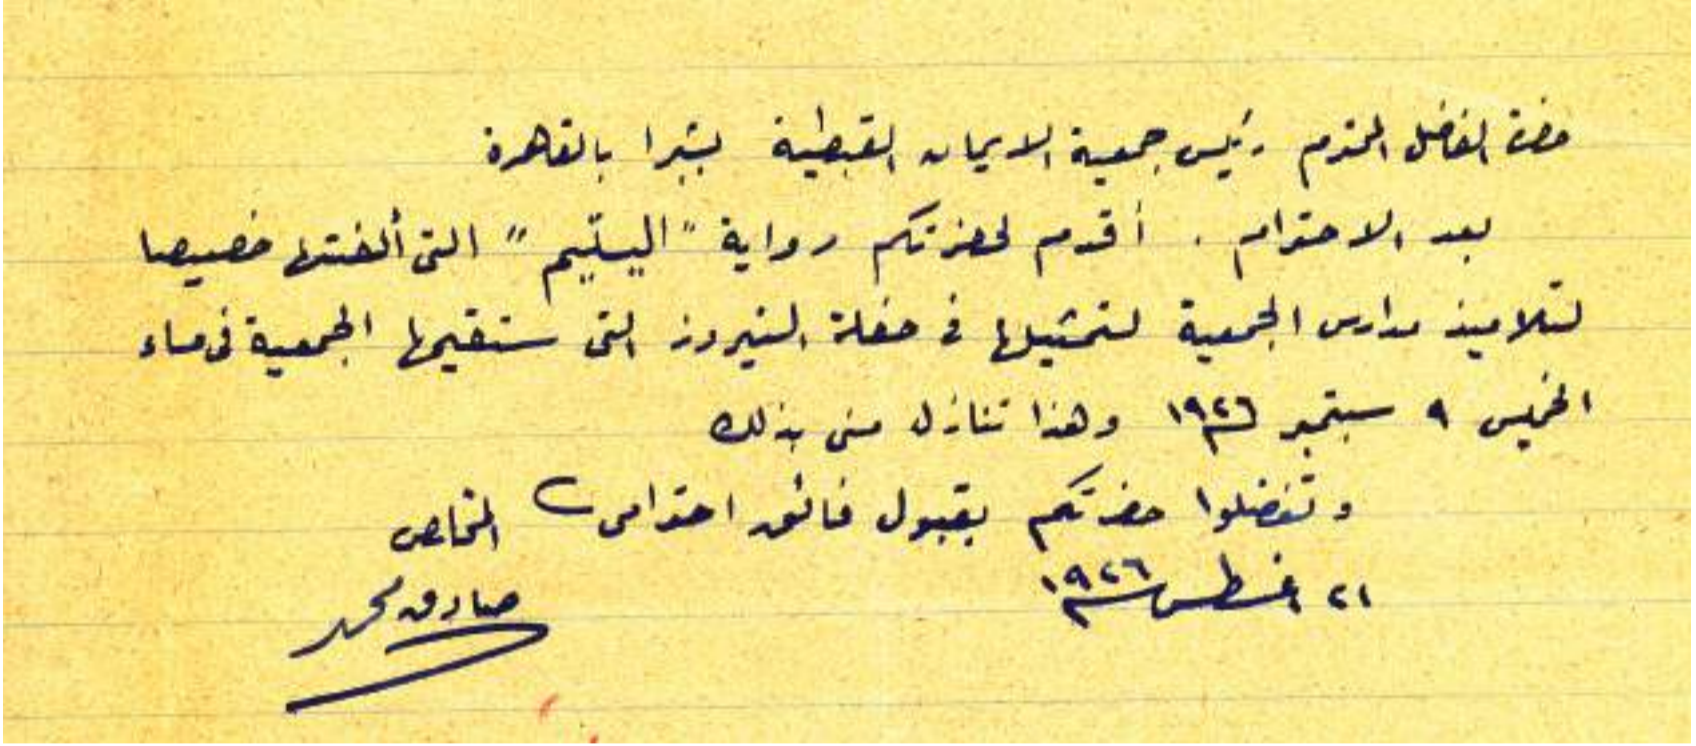 حضرة الفاضل المحترم رئيس جمعية الايمان القبطية بشبرا بالقاهرة
بعد الاحترام . أقدم لحضرتكم رواية "اليتيم" التى ألفتها خصيصا
لتلاميذ مدارس الجمعية لتمثيلها فى حفلة النيروز التى ستقيمها الجمعية فى مساء
الخميس ٩ سبتمبر ١٩٢٦ وهذا تنازل منى بذلك
وتفضلوا حضرتكم بقبول فائق احترامى المخلص
٢١ اغسطس ١٩٢٦
صادق محمد